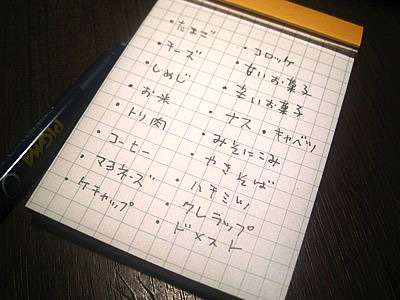 ・たまご
・チーズ
・しめじ
・お米
・トリ肉
・コーヒー
・マヨネーズ
・ケチャップ
・コロッケ
・甘いお菓子
・辛いお菓子
・ナス ・キャベツ
・みそにこみ
・やきそば
・ハチミツ
・クレラップ
・ドメスト
PIGMA